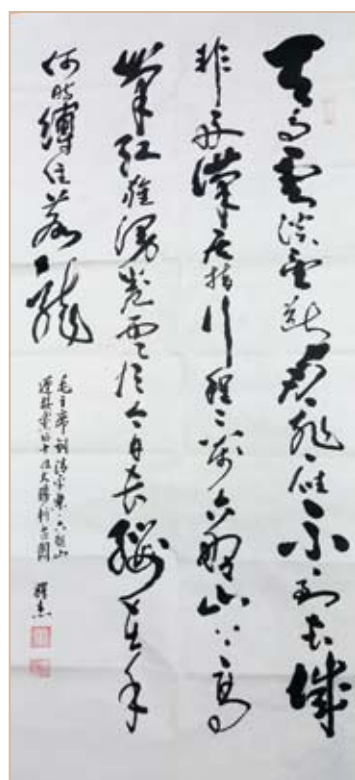 天高雲淡望斷南飛雁不到長城
非好漢屈指行程二萬六盤山上高
峰紅旗漫卷西風今日長纓在手
何時縛住蒼龍
毛主席詞清平樂·六盤山